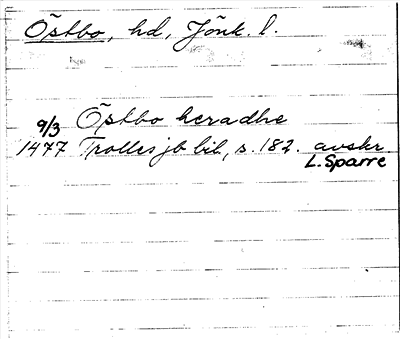 Östbo, hd, Jönk. l.
Östbo heradhe
9/3
1477 Trolles jb bil, s. 182. avskr.
L. Sparre